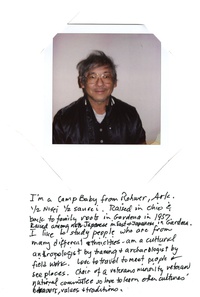 I'm a Camp Baby from Rohwer, Ark.
1/2 Nisei 1/2 Sansei. Raised in Ohio &
back to family roots in Gardena in 1957.
Raised among Japanese in Gardena.
I like to study people who are from
many different ethnicities - am a cultural
anthropologist by training & archaeologist by
field work. Love to travel to meet people &
see places. Chair of a veterans minority veterans
national committee to learn other cultures'
values & traditions.